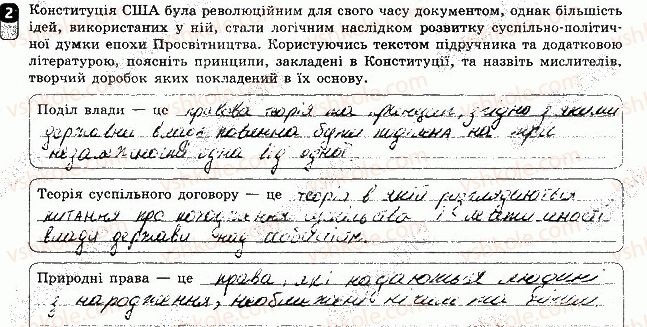 2 Конституція США була революційним для свого часу документом, однак більшість
ідей, використаних у ній, стали логічним наслідком розвитку суспільно-політич-
ної думки епохи Просвітництва. Користуючись текстом підручника та додатковою
літературою, поясніть принципи, закладені в Конституції, та назвіть мислителів,
творчий доробок яких покладений в їх основу.
Поділ влади — це правова теорія та принцип, згідно з якими
державна влада повинна бути поділена на три
незалежні одна від одної
Теорія суспільного договору — це теорія в якій розглядаються
питання про походження суспільства і
влади держави над
Природні права — це права, які надаються людині
з народження, необмежені нічим та